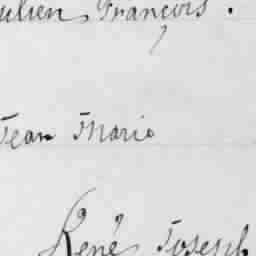 ulien, François.
Jean Marie
René Joseph